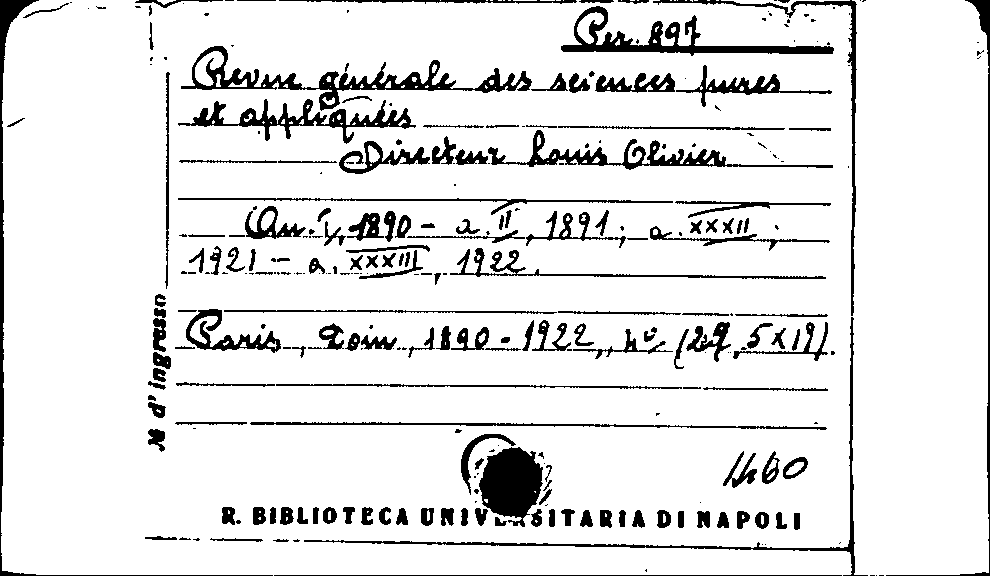 Per. 897
Revue générale des sciences pures
et appliquées
Directeur Louis Olivier
An. I, 1890 - a. II, 1891; a. XXXII;
1921 - a. XXXIII, 1922.
Paris, Doin, 1890-1922, 4º (29,5x19).
№ d'ingresso
1460
R. BIBLIOTECA UNIVERSITARIA DI NAPOLI